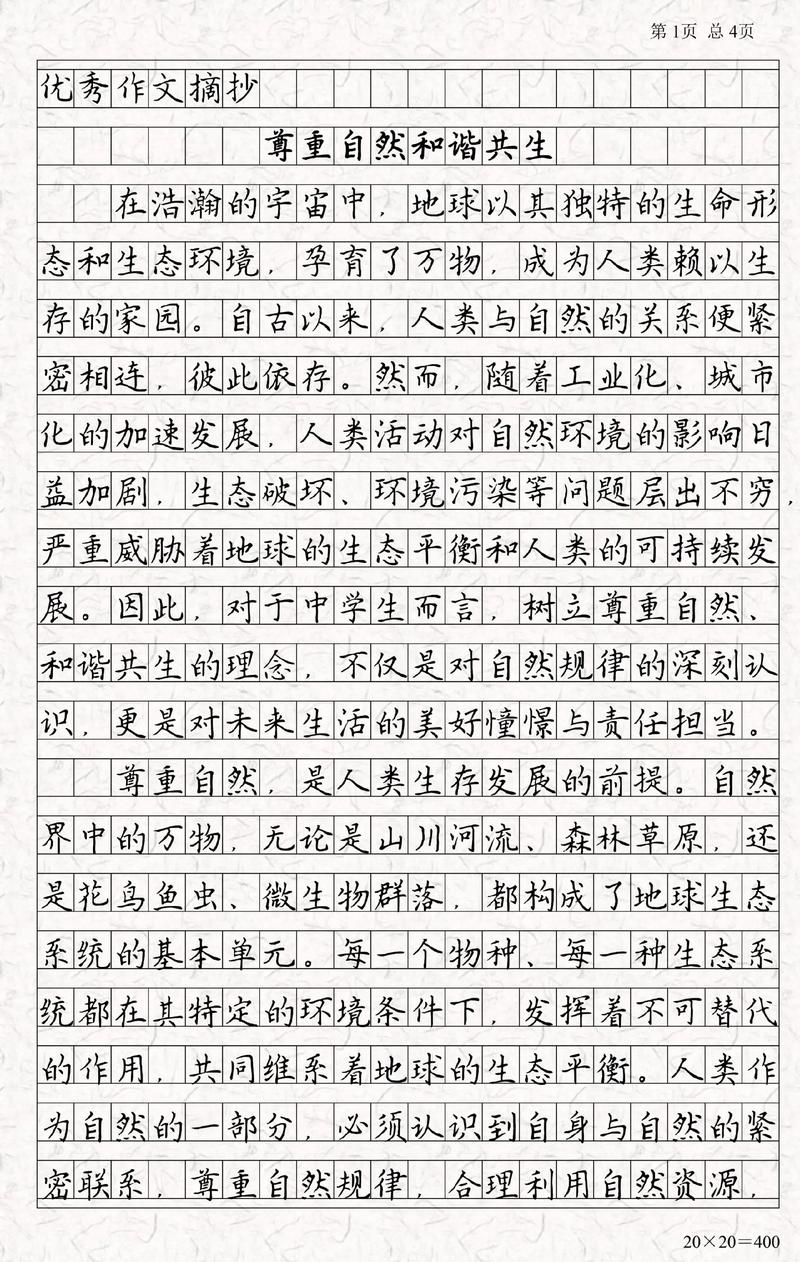 第1页 总4页
优秀作文摘抄
尊重自然和谐共生
在浩瀚的宇宙中，地球以其独特的生命形
态和生态环境，孕育了万物，成为人类赖以生
存的家园。自古以来，人类与自然的关系便紧
密相连，彼此依存。然而，随着工业化、城市
化的加速发展，人类活动对自然环境的影响日
益加剧，生态破坏、环境污染等问题层出不穷，
严重威胁着地球的生态平衡和人类的可持续发
展。因此，对于中学生而言，树立尊重自然、
和谐共生的理念，不仅是对自然规律的深刻认
识，更是对未来生活的美好憧憬与责任担当。
尊重自然，是人类生存发展的前提。自然
界中的万物，无论是山川河流、森林草原，还
是花鸟鱼虫、微生物群落，都构成了地球生态
系统的基本单元。每一个物种、每一种生态系
统都在其特定的环境条件下，发挥着不可替代
的作用，共同维系着地球的生态平衡。人类作
为自然的一部分，必须认识到自身与自然的紧
密联系，尊重自然规律，合理利用自然资源，
20×20=400